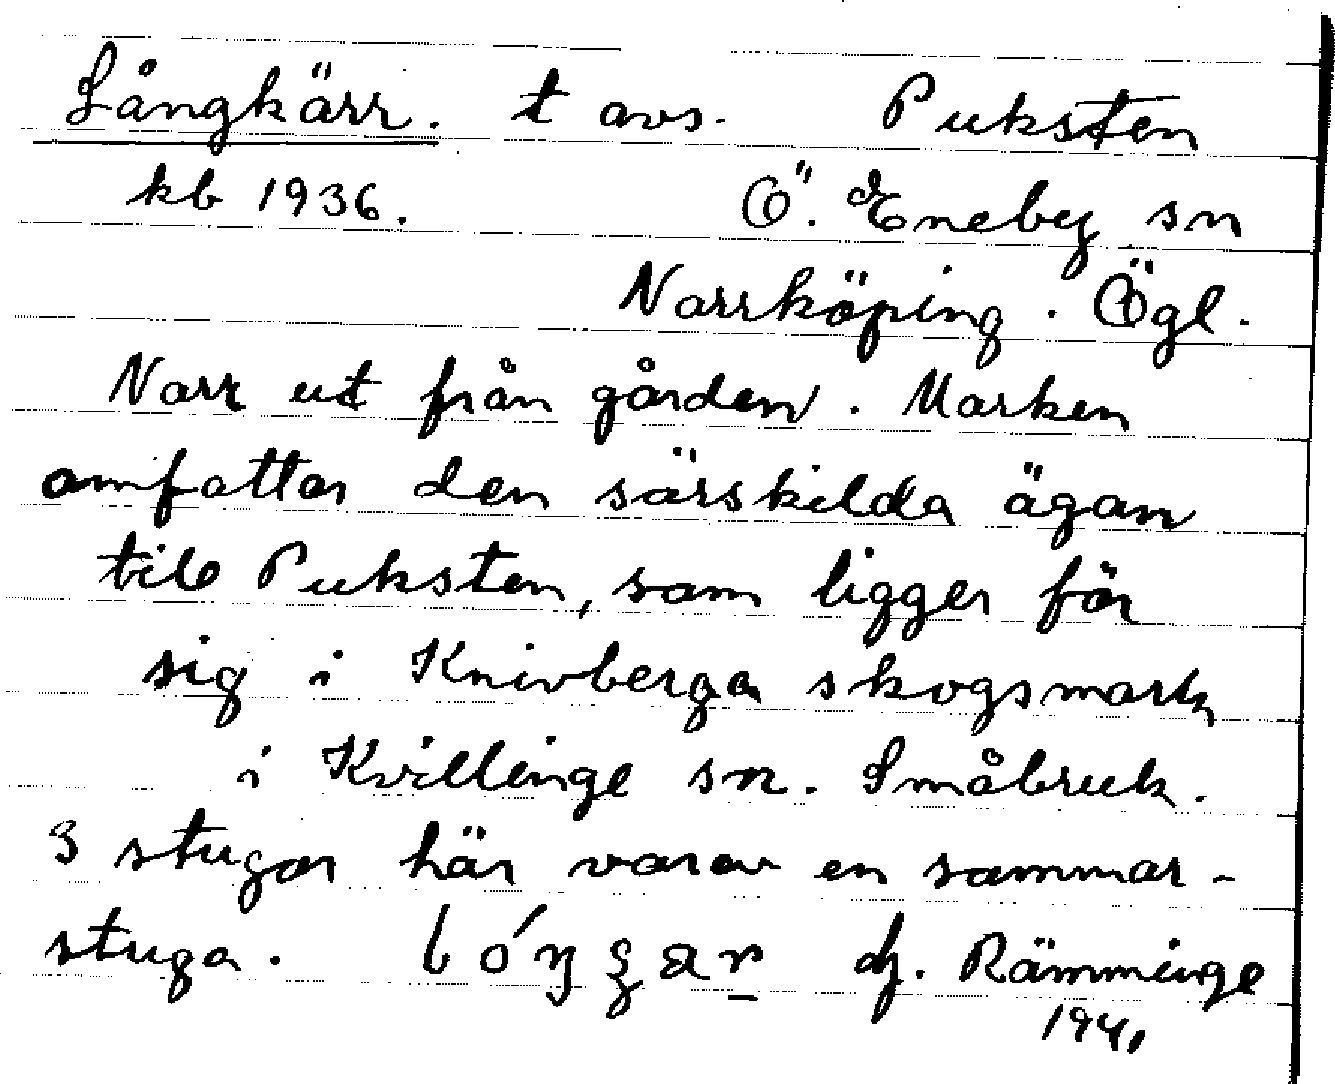 Långkärr. t avs. Puksten
kb 1936. Ö. Eneby sn
Norrköping. Ögl.
Norr ut från gården. Marken
omfattar den särskilda ägan
till Puksten, som ligger för
sig i Knivberga skogsmark
i Kvillinge sn. Småbruk.
3 stugor här varav en sommar-
stuga. dj. Rämminge
1941